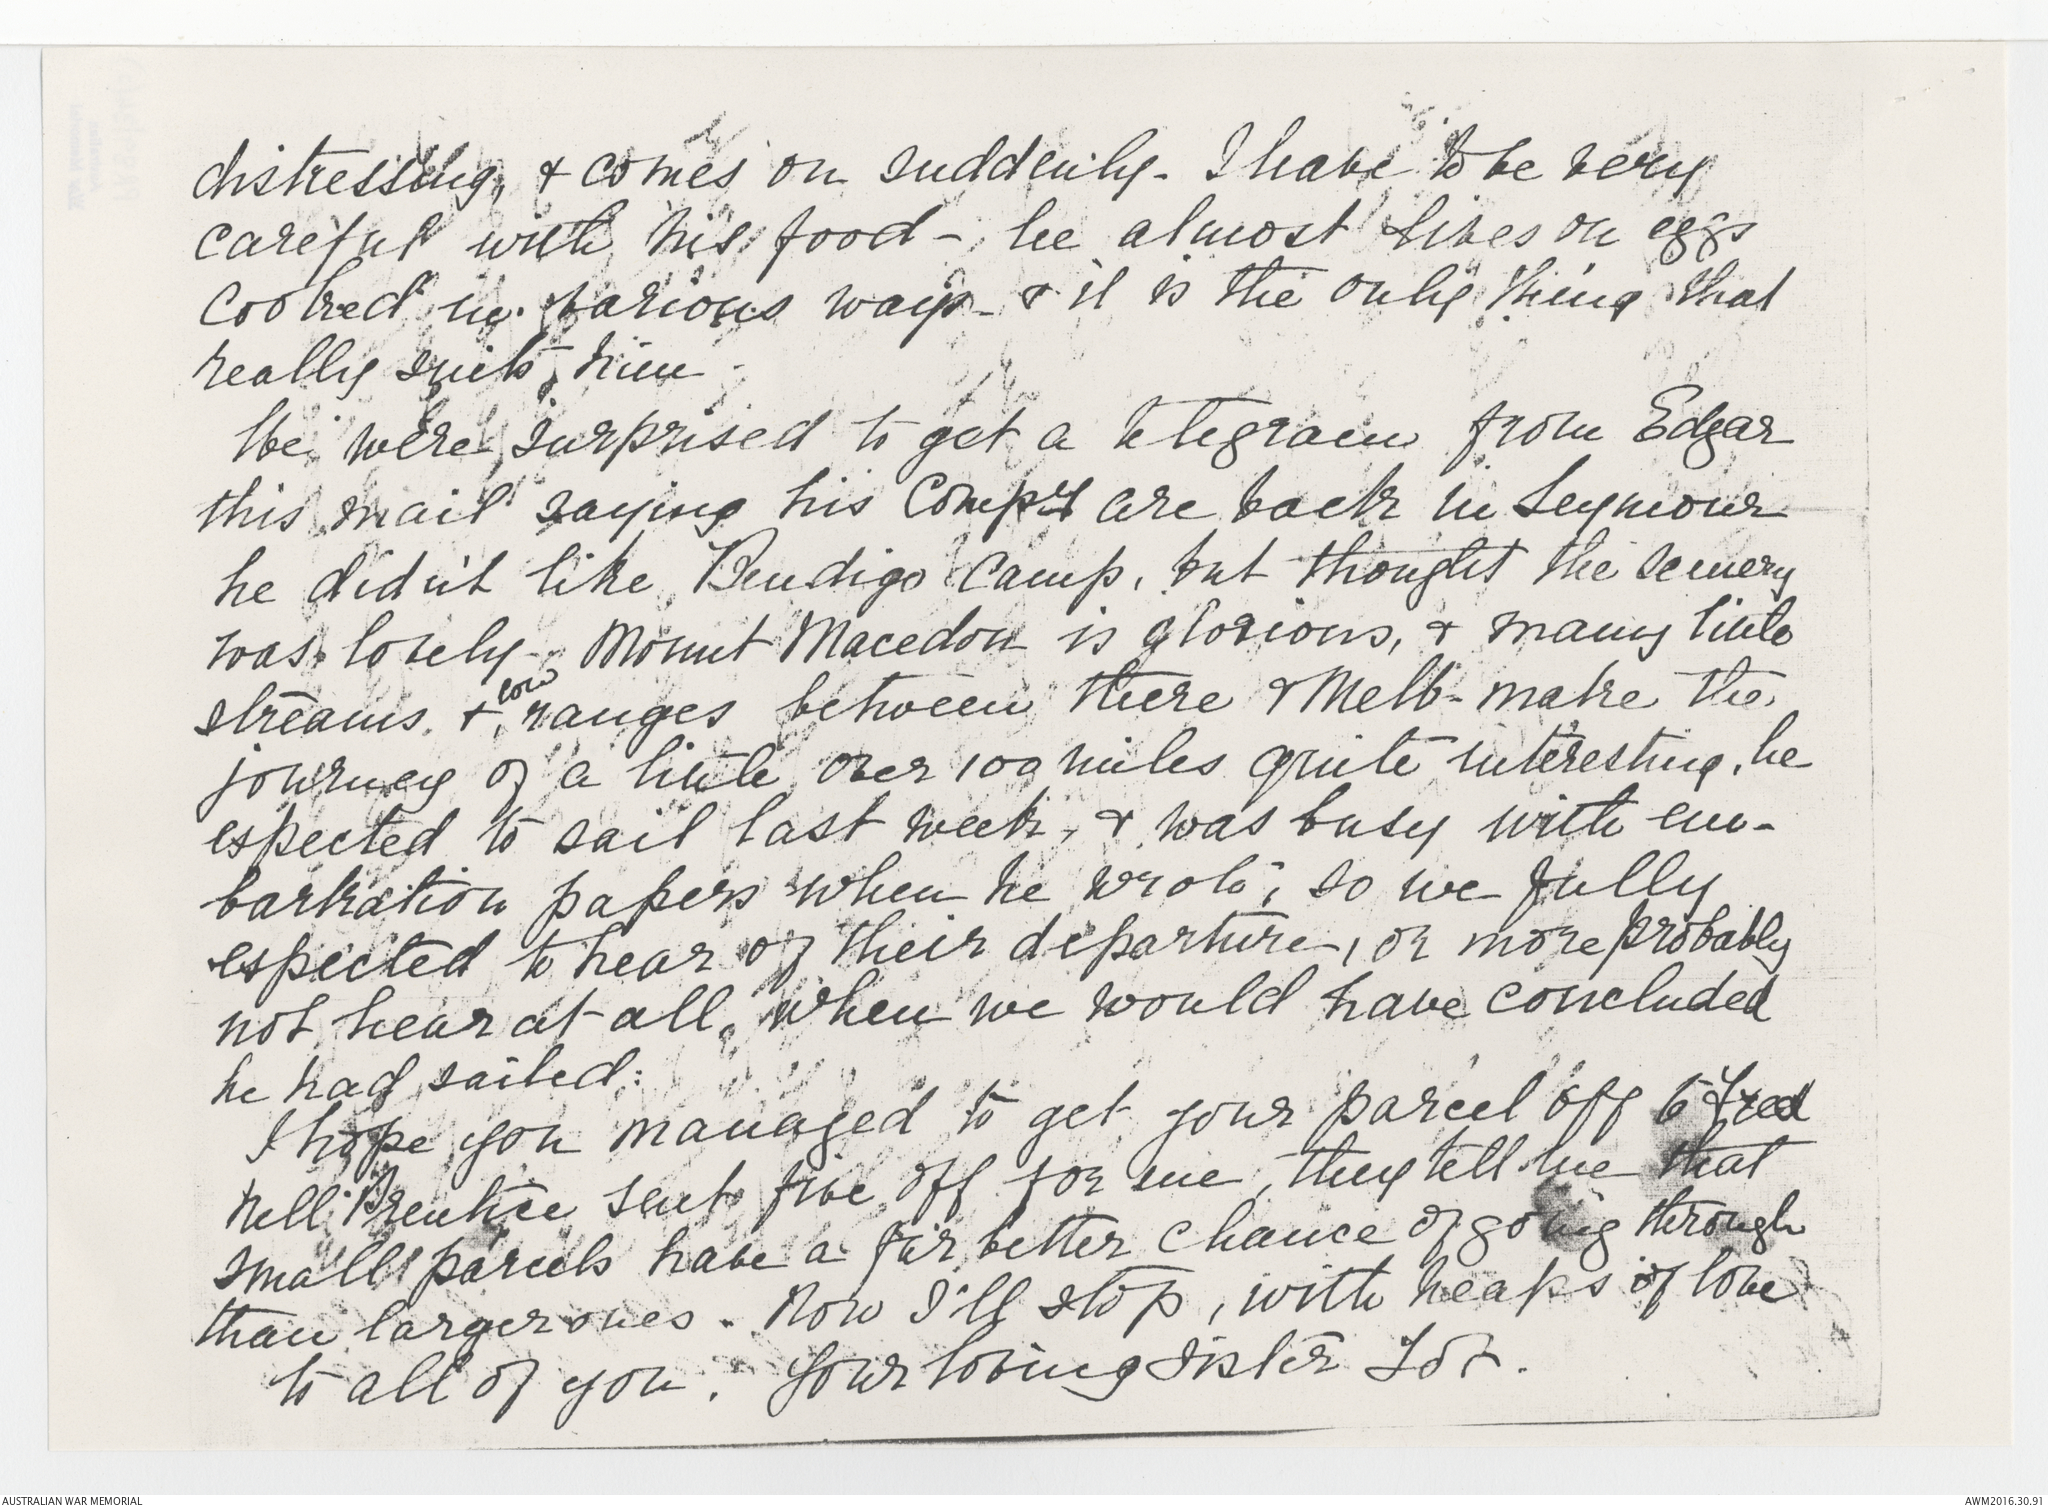 distressing, & comes on suddenly - I have to be very
careful with his food - he almost lives on eggs
cooked in various ways - & it is the only thing that
really suits him -
We were surprised to get a telegram from Edgar
this mail saying his Compy are back in Seymour
he didn't like Bendigo Camp, but thought the scenery
was lovely - Mount Macedon is glorious, & many little
streams & low ranges between there & Melb - make the
journey of a little over 100 miles quite interesting, he
expected to sail last week, & was busy with em-
barkation papers when he wrote, so we fully
expected to hear of their departure, or more probably
not hear at all, when we would have concluded
he had sailed.
I hope you managed to get your parcel off to Fred
Nell Prentice sent five off for me, they tell me that
small parcels have a far better chance of going through
than larger ones. Now I'll stop, with heaps of love
to all of you. Your loving sister Lot.
AUSTRALIAN WAR MEMORIAL
AWM2016.30.91